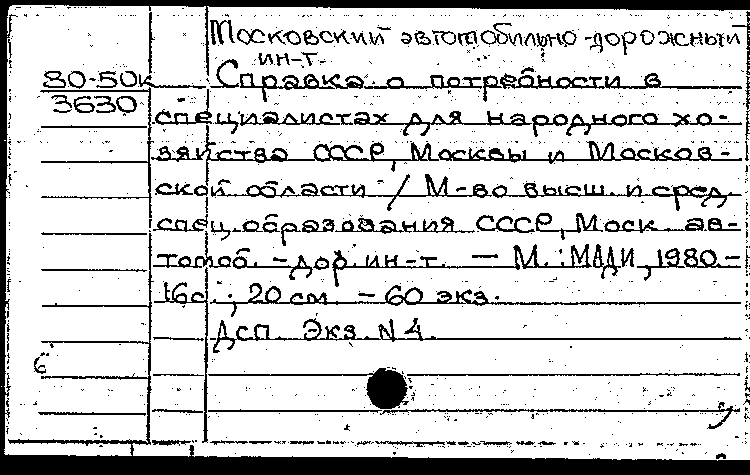 Московский автомобильно-дорожный
ин-т.
80-50к
3630
Справка о потребности в
специалистах для народного хо-
зяйства СССР, Москвы и Москов-
ской области / М-во высш. и сред.
спец. образования СССР, Моск. ав-
томоб. -дор. ин-т. — М. : МАДИ, 1980.-
16с. ; 20 см. - 60 экз.
Дсп. Экз. N 4.
6